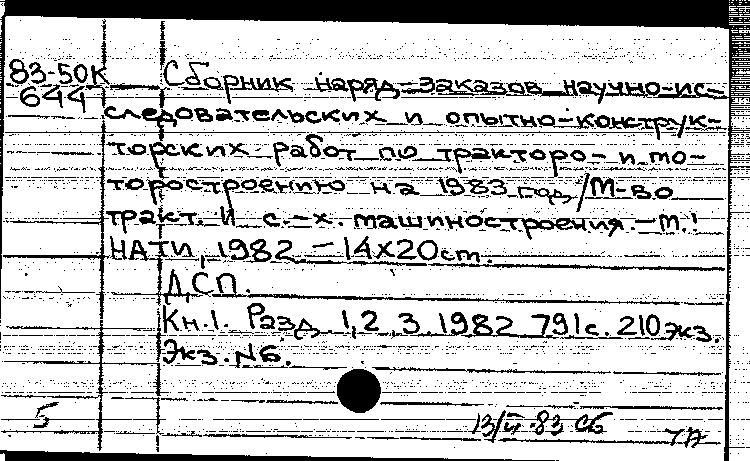 83-50К Сборник наряд-заказов научно-ис-
644 следовательских и опытно-конструк-
торских работ по тракторо- и мо-
торостроению на 1983 год /М-во
тракт. и с.-х. машиностроения. – М.:
НАТИ, 1982. – 14х20 см.
ДСП.
Кн.1. Разд. 1,2,3. 1982 791 с. 210 экз.
Экз. №6.
5 13/II-83 Сб